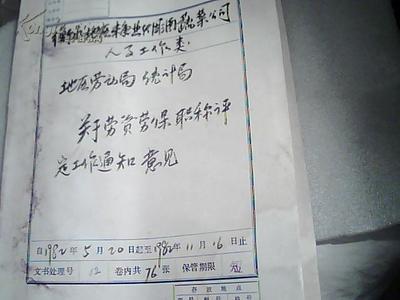 蔬菜公司
人事工作类
地区劳动局 统计局
关于劳资劳保职称评
定工作通知 意见
自1982年5月20日起至1982年11月16日止
文书处理号 12 卷内共76张 保管期限
存放地点